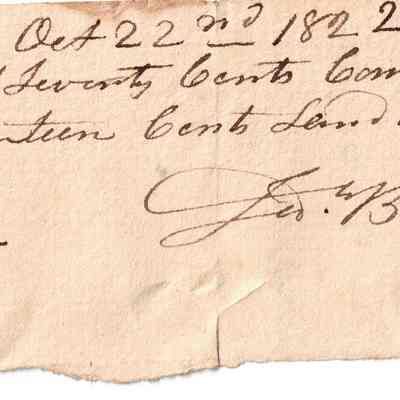 Oct 22nd 1822
Seventy Cents Com
teen Cents Land
Geo. B